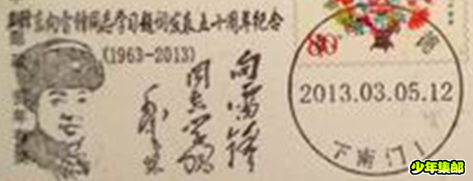 向雷锋同志学习题词发表五十周年纪念
(1963-2013)
向雷锋
同志学习
毛泽东
80
2013.03.05.12
下南门1
少年集邮